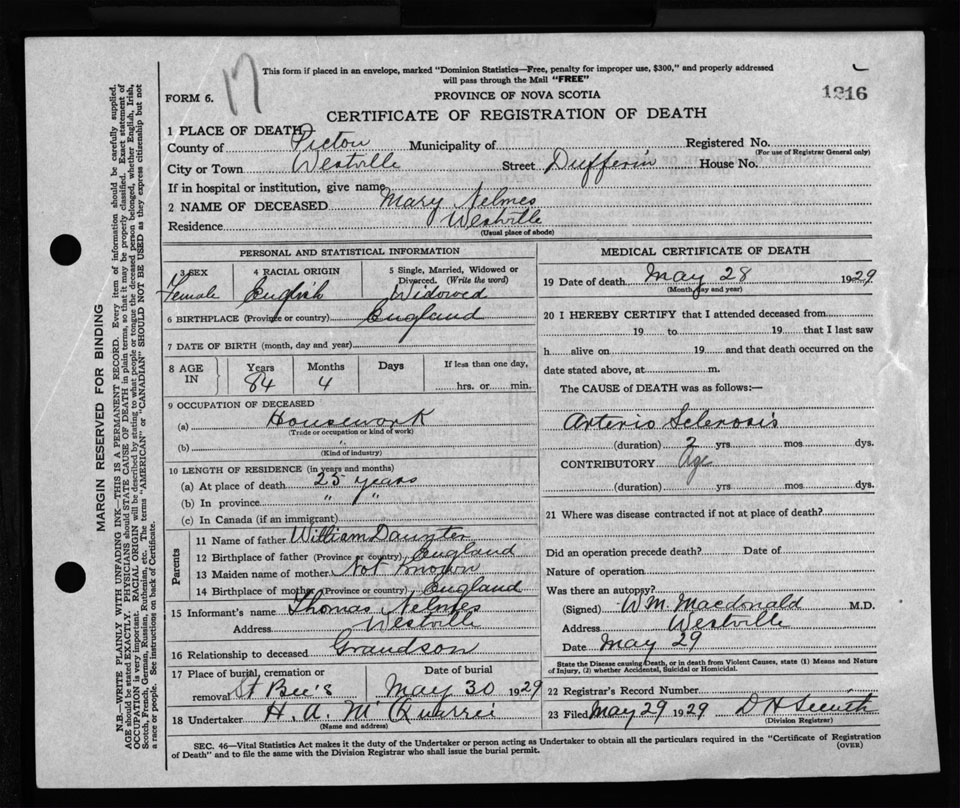 17
This form if placed in an envelope, marked "Dominion Statistics—Free, penalty for improper use, $300," and properly addressed
will pass through the Mail "FREE"
FORM 6.
PROVINCE OF NOVA SCOTIA
1216
CERTIFICATE OF REGISTRATION OF DEATH
1 PLACE OF DEATH
County of Pictou Municipality of Registered No.
(For use of Registrar General only)
City or Town Westville Street Dufferin House No.
If in hospital or institution, give name
2 NAME OF DECEASED Mary Nelmes
Residence Westville
(Usual place of abode)
PERSONAL AND STATISTICAL INFORMATION
3 SEX 4 RACIAL ORIGIN 5 Single, Married, Widowed or Divorced. (Write the word)
Female English Widowed
6 BIRTHPLACE (Province or country) England
7 DATE OF BIRTH (month, day and year)
8 AGE IN Years Months Days If less than one day,
84 4 hrs. or min.
9 OCCUPATION OF DECEASED
(a) Housework
(Trade or occupation or kind of work)
(b) "
(Kind of industry)
10 LENGTH OF RESIDENCE (in years and months)
(a) At place of death 25 years
(b) In province " "
(c) In Canada (if an immigrant)
Parents
11 Name of father William
12 Birthplace of father (Province or country) England
13 Maiden name of mother Not Known
14 Birthplace of mother (Province or country) England
15 Informant's name Thomas Nelmes
Address Westville
16 Relationship to deceased Grandson
17 Place of burial, cremation or removal St Bee's Date of burial May 30 1929
18 Undertaker H. A. McQuarrie
(Name and address)
MEDICAL CERTIFICATE OF DEATH
19 Date of death May 28 1929
(Month, day and year)
20 I HEREBY CERTIFY that I attended deceased from
19 to 19 that I last saw
h alive on 19 and that death occurred on the
date stated above, at m.
The CAUSE of DEATH was as follows:—
Arterio Sclerosis
(duration) 2 yrs. mos dys.
CONTRIBUTORY Age
(duration) yrs. mos. dys.
21 Where was disease contracted if not at place of death?
Did an operation precede death? Date of
Nature of operation
Was there an autopsy?
(Signed) Wm. Macdonald M.D.
Address Westville
Date May 29
State the Disease causing Death, or in death from Violent Causes, state (1) Means and Nature
of Injury, (2) whether Accidental, Suicidal or Homicidal.
22 Registrar's Record Number
23 Filed May 29 1929 D H
(Division Registrar)
SEC. 46—Vital Statistics Act makes it the duty of the Undertaker or person acting as Undertaker to obtain all the particulars required in the "Certificate of Registration
of Death" and to file the same with the Division Registrar who shall issue the burial permit.
(OVER)
MARGIN RESERVED FOR BINDING
N.B.—WRITE PLAINLY WITH UNFADING INK—THIS IS A PERMANENT RECORD. Every item of information should be carefully supplied.
AGE should be stated EXACTLY. PHYSICIANS should STATE CAUSE OF DEATH in plain terms, so that it may be properly classified. Exact statement of
OCCUPATION is very important. RACIAL ORIGIN will be described by stating to what people or tongue the deceased person belonged, whether English, Irish,
Scotch, French, German, Russian, Ruthenian, etc. The terms "AMERICAN" or "CANADIAN" SHOULD NOT BE USED as they express citizenship but not
a race or people. See instructions on back of Certificate.